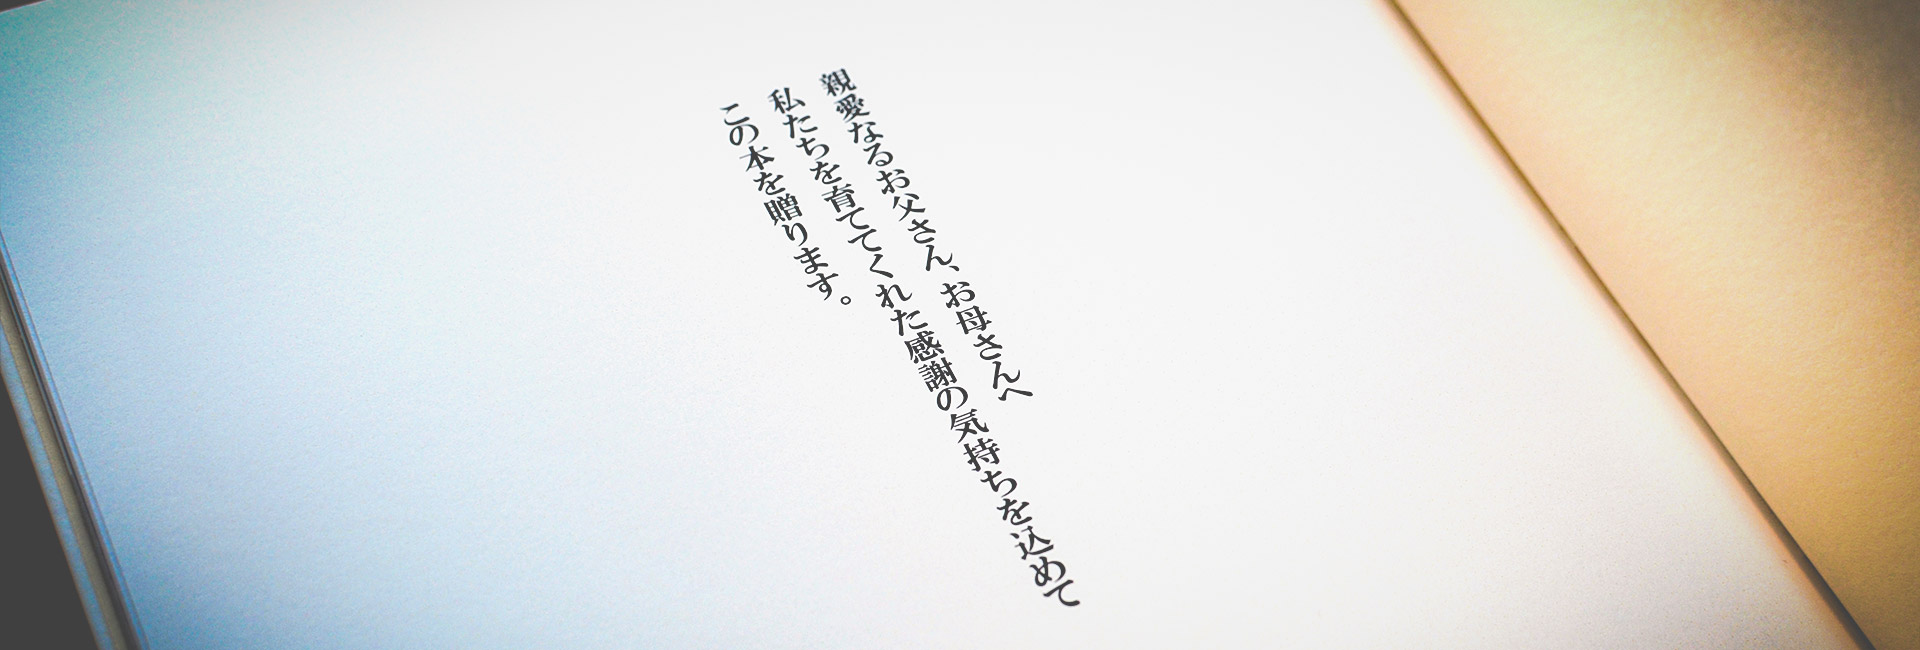 親愛なるお父さん、お母さんへ
私たちを育ててくれた感謝の気持ちを込めて
この本を贈ります。